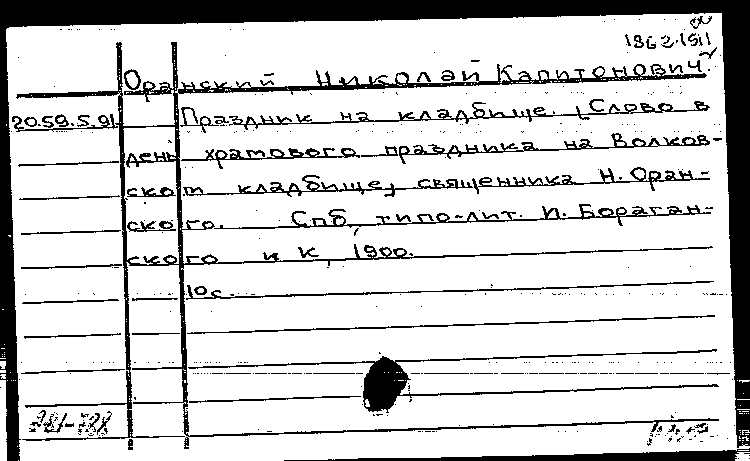 1862-1911
Оранский, Николай Капитонович.
20.59.5.91
Праздник на кладбище. [Слово в
день храмового праздника на Волков-
ском кладбище] священника Н. Оран-
ского. Спб, типо-лит. И. Бораган-
ского и К, 1900.
10с.
281-788